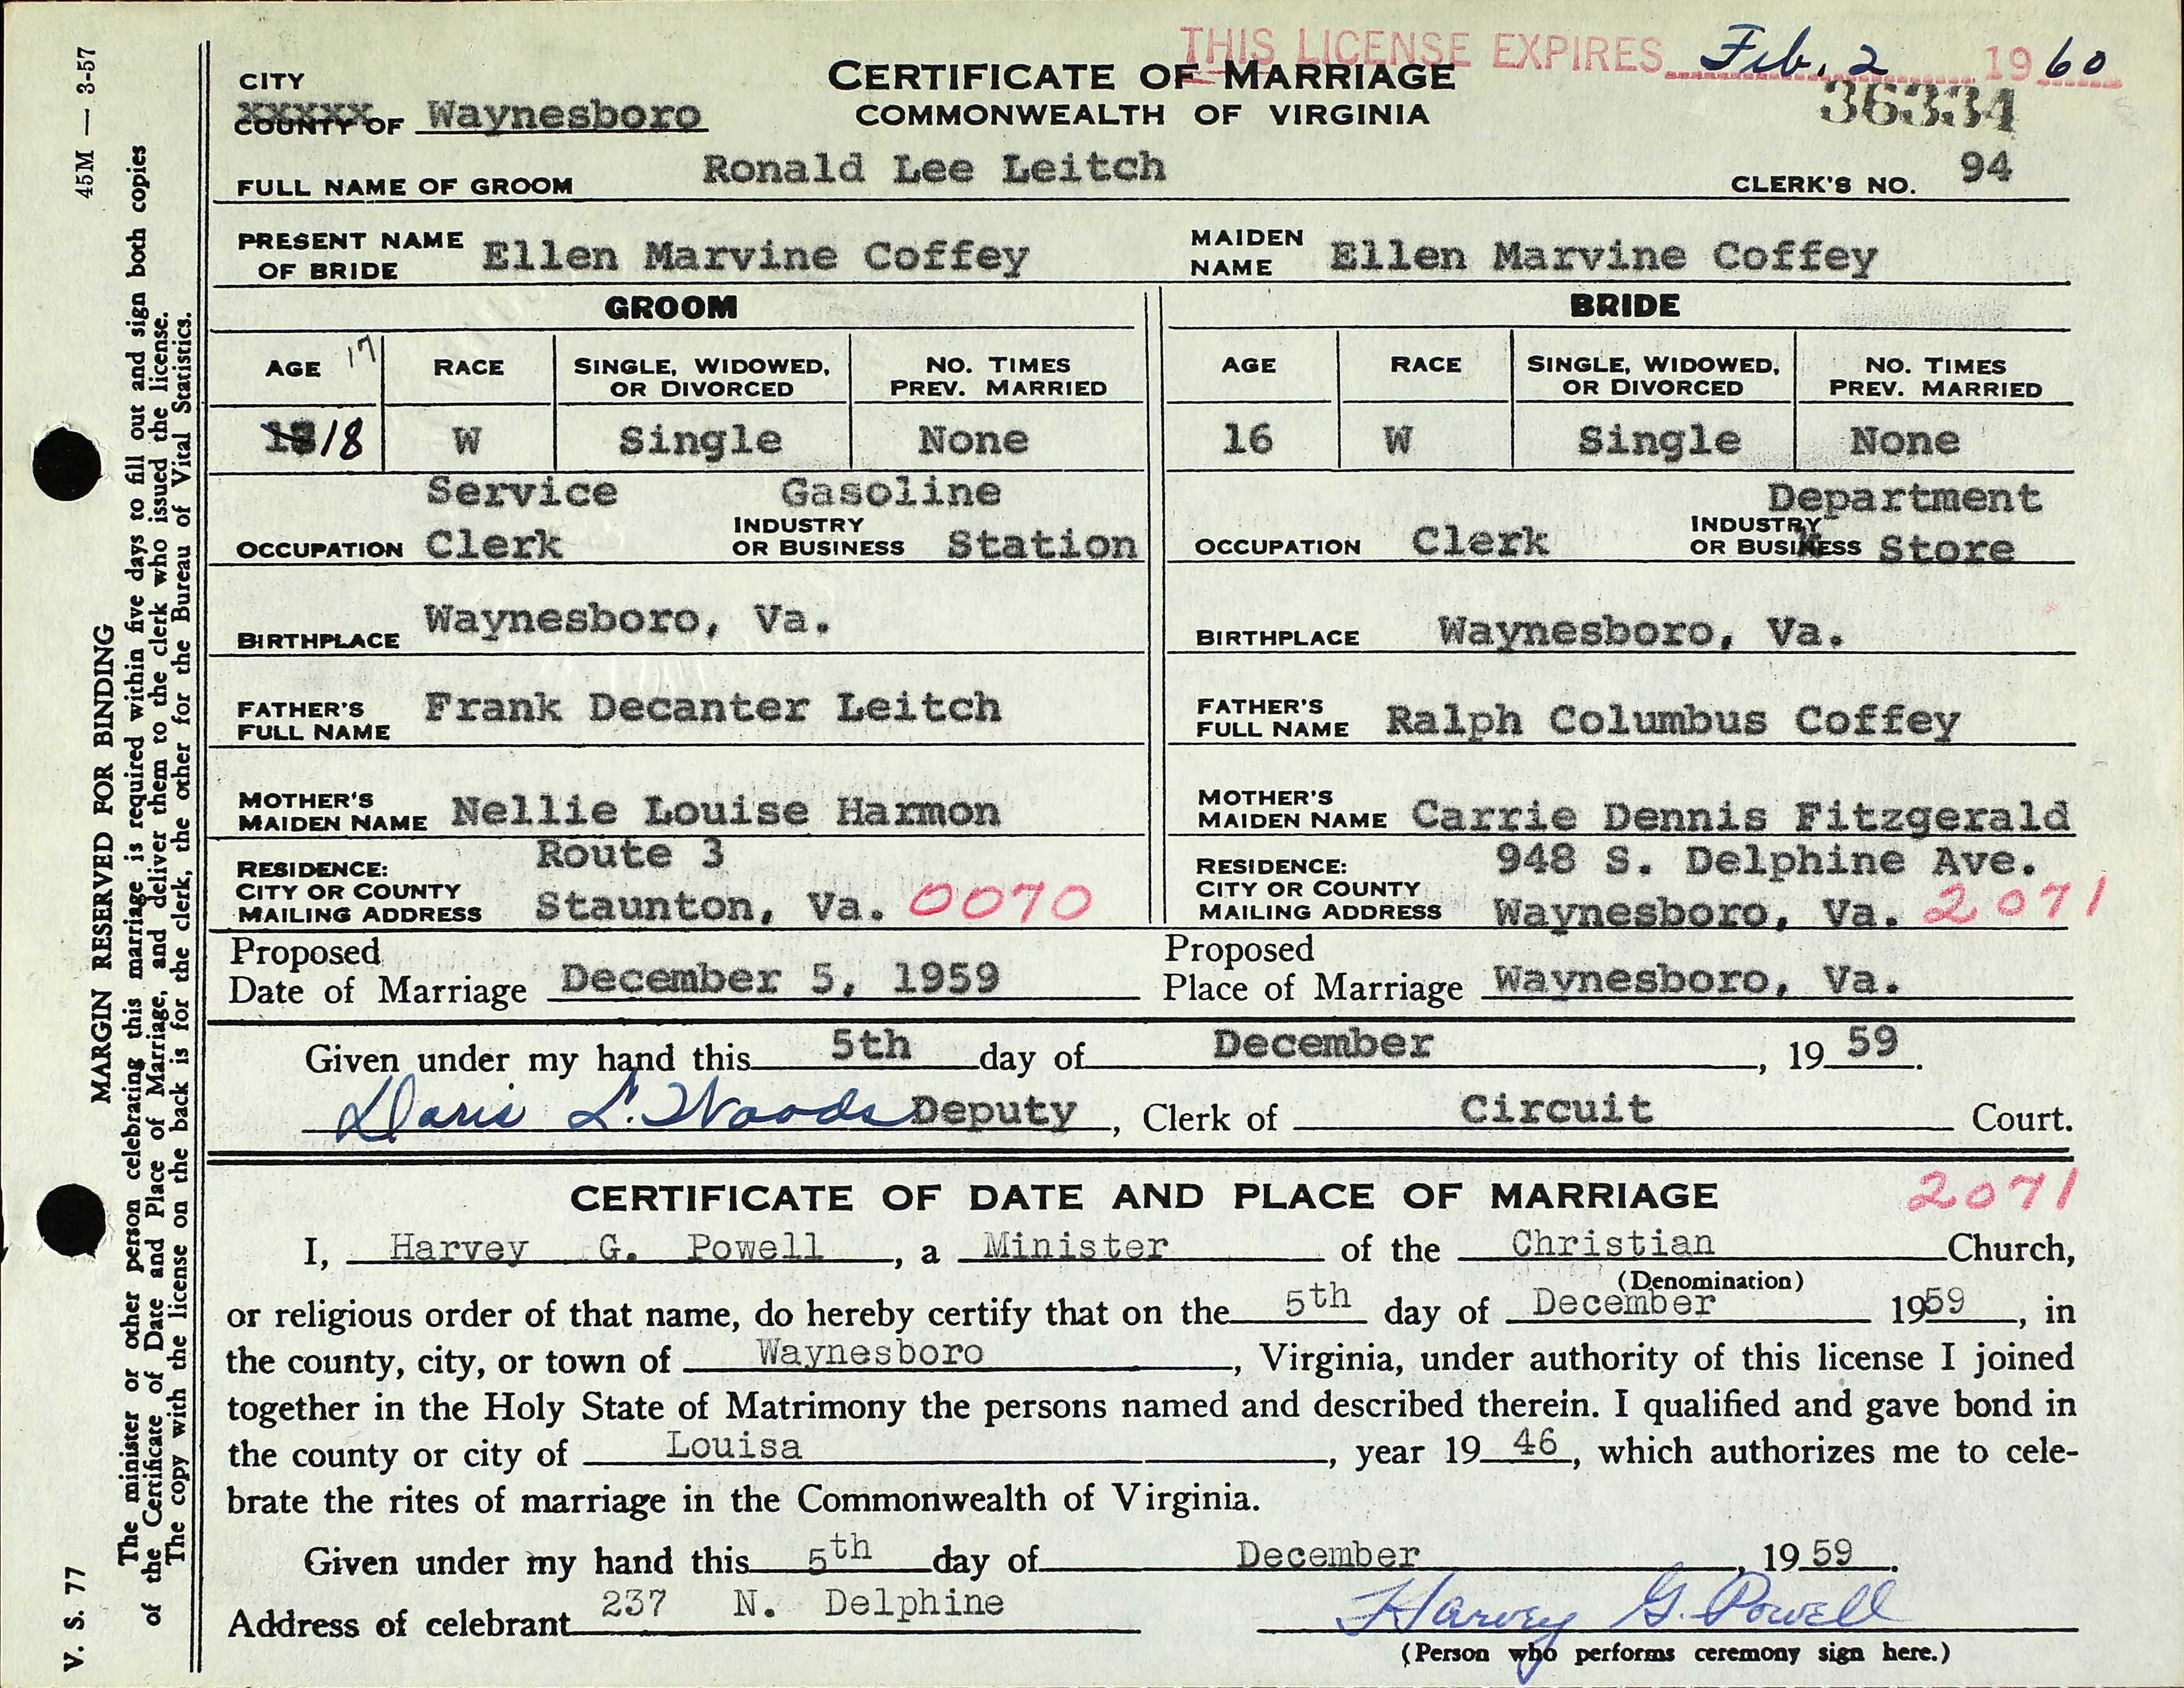 THIS LICENSE EXPIRES Feb. 2 1960
CITY
XXXXX
COUNTY OF Waynesboro
CERTIFICATE OF MARRIAGE
COMMONWEALTH OF VIRGINIA
36334
FULL NAME OF GROOM Ronald Lee Leitch CLERK'S NO. 94
PRESENT NAME OF BRIDE Ellen Marvine Coffey MAIDEN NAME Ellen Marvine Coffey
GROOM BRIDE
AGE 17 RACE SINGLE, WIDOWED, OR DIVORCED NO. TIMES PREV. MARRIED AGE RACE SINGLE, WIDOWED, OR DIVORCED NO. TIMES PREV. MARRIED
18 W Single None 16 W Single None
OCCUPATION Service Clerk INDUSTRY OR BUSINESS Gasoline Station OCCUPATION Clerk INDUSTRY OR BUSINESS Department Store
BIRTHPLACE Waynesboro, Va. BIRTHPLACE Waynesboro, Va.
FATHER'S FULL NAME Frank Decanter Leitch FATHER'S FULL NAME Ralph Columbus Coffey
MOTHER'S MAIDEN NAME Nellie Louise Harmon MOTHER'S MAIDEN NAME Carrie Dennis Fitzgerald
RESIDENCE: CITY OR COUNTY MAILING ADDRESS Route 3 Staunton, Va. 0070 RESIDENCE: CITY OR COUNTY MAILING ADDRESS 948 S. Delphine Ave. Waynesboro, Va. 2071
Proposed Date of Marriage December 5, 1959 Proposed Place of Marriage Waynesboro, Va.
Given under my hand this 5th day of December, 19 59.
Doris L. Woods Deputy, Clerk of Circuit Court.
CERTIFICATE OF DATE AND PLACE OF MARRIAGE 2071
I, Harvey G. Powell, a Minister of the Christian Church,
(Denomination)
or religious order of that name, do hereby certify that on the 5th day of December 1959, in
the county, city, or town of Waynesboro, Virginia, under authority of this license I joined
together in the Holy State of Matrimony the persons named and described therein. I qualified and gave bond in
the county or city of Louisa, year 19 46, which authorizes me to cele-
brate the rites of marriage in the Commonwealth of Virginia.
Given under my hand this 5th day of December, 19 59.
Address of celebrant 237 N. Delphine Harvey G. Powell
(Person who performs ceremony sign here.)
V. S. 77 MARGIN RESERVED FOR BINDING 45M — 3-57
The minister or other person celebrating this marriage is required within five days to fill out and sign both copies
of the Certificate of Date and Place of Marriage, and deliver them to the clerk who issued the license.
The copy with the license on the back is for the clerk, the other for the Bureau of Vital Statistics.